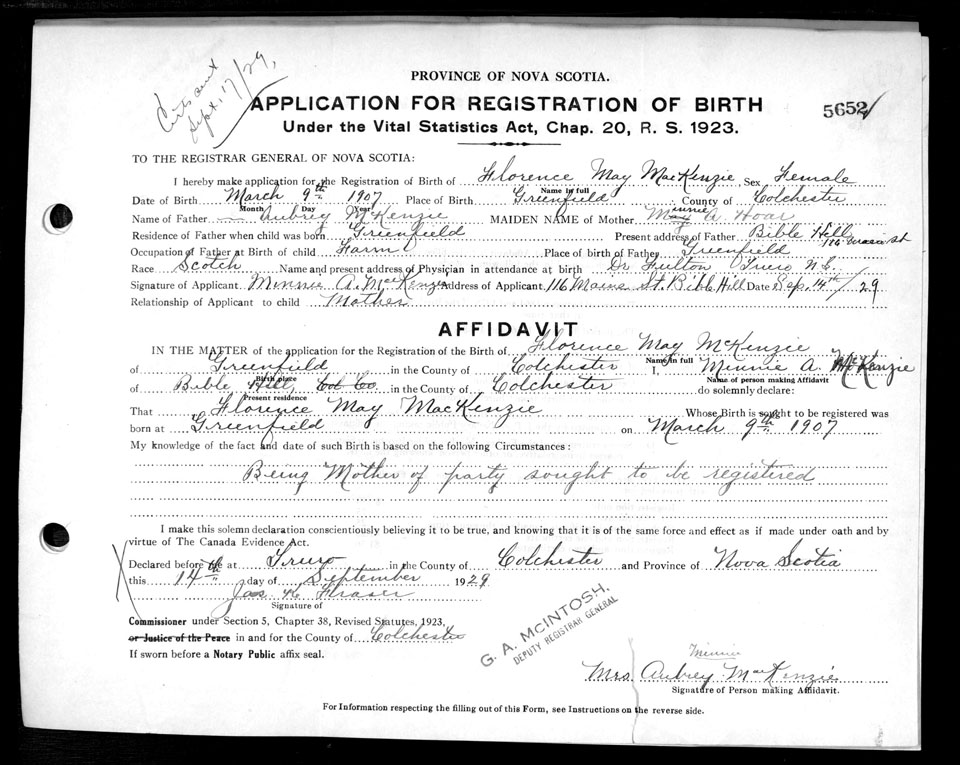 PROVINCE OF NOVA SCOTIA.
Sept. 17/29,
APPLICATION FOR REGISTRATION OF BIRTH
5652
Under the Vital Statistics Act, Chap. 20, R. S. 1923.
TO THE REGISTRAR GENERAL OF NOVA SCOTIA:
I hereby make application for the Registration of Birth of Florence May MacKenzie Sex Female
Name in full
Date of Birth March 9th 1907 Place of Birth Greenfield County of Colchester
Month Day Year
Name of Father Aubrey McKenzie MAIDEN NAME of Mother Minnie A. Hoar
Residence of Father when child was born Greenfield Present address of Father Bible Hill
Occupation of Father at Birth of child Farm Place of birth of Father Greenfield
Race Scotch Name and present address of Physician in attendance at birth Dr Fulton Truro N.S.
Signature of Applicant Minnie A. MacKenzie Address of Applicant 116 Maine St. Bible Hill Date Sep. 14th/29
Relationship of Applicant to child Mother
AFFIDAVIT
IN THE MATTER of the application for the Registration of the Birth of Florence May McKenzie
Name in full
of Greenfield in the County of Colchester I, Minnie A. McKenzie
Birth place Name of person making Affidavit
of Bible Hill, Col Co. in the County of Colchester do solemnly declare:
Present residence
That Florence May MacKenzie Whose Birth is sought to be registered was
born at Greenfield on March 9th 1907
My knowledge of the fact and date of such Birth is based on the following Circumstances:
Being Mother of party sought to be registered
I make this solemn declaration conscientiously believing it to be true, and knowing that it is of the same force and effect as if made under oath and by
virtue of The Canada Evidence Act.
Declared before me at Truro in the County of Colchester and Province of Nova Scotia
this 14th day of September 1929
Jas. K Fraser
Signature of
Commissioner under Section 5, Chapter 38, Revised Statutes, 1923,
or Justice of the Peace in and for the County of Colchester
If sworn before a Notary Public affix seal.
G. A. MCINTOSH,
DEPUTY REGISTRAR GENERAL
Minnie
Mrs Aubrey MacKenzie
Signature of Person making Affidavit.
For Information respecting the filling out of this Form, see Instructions on the reverse side.